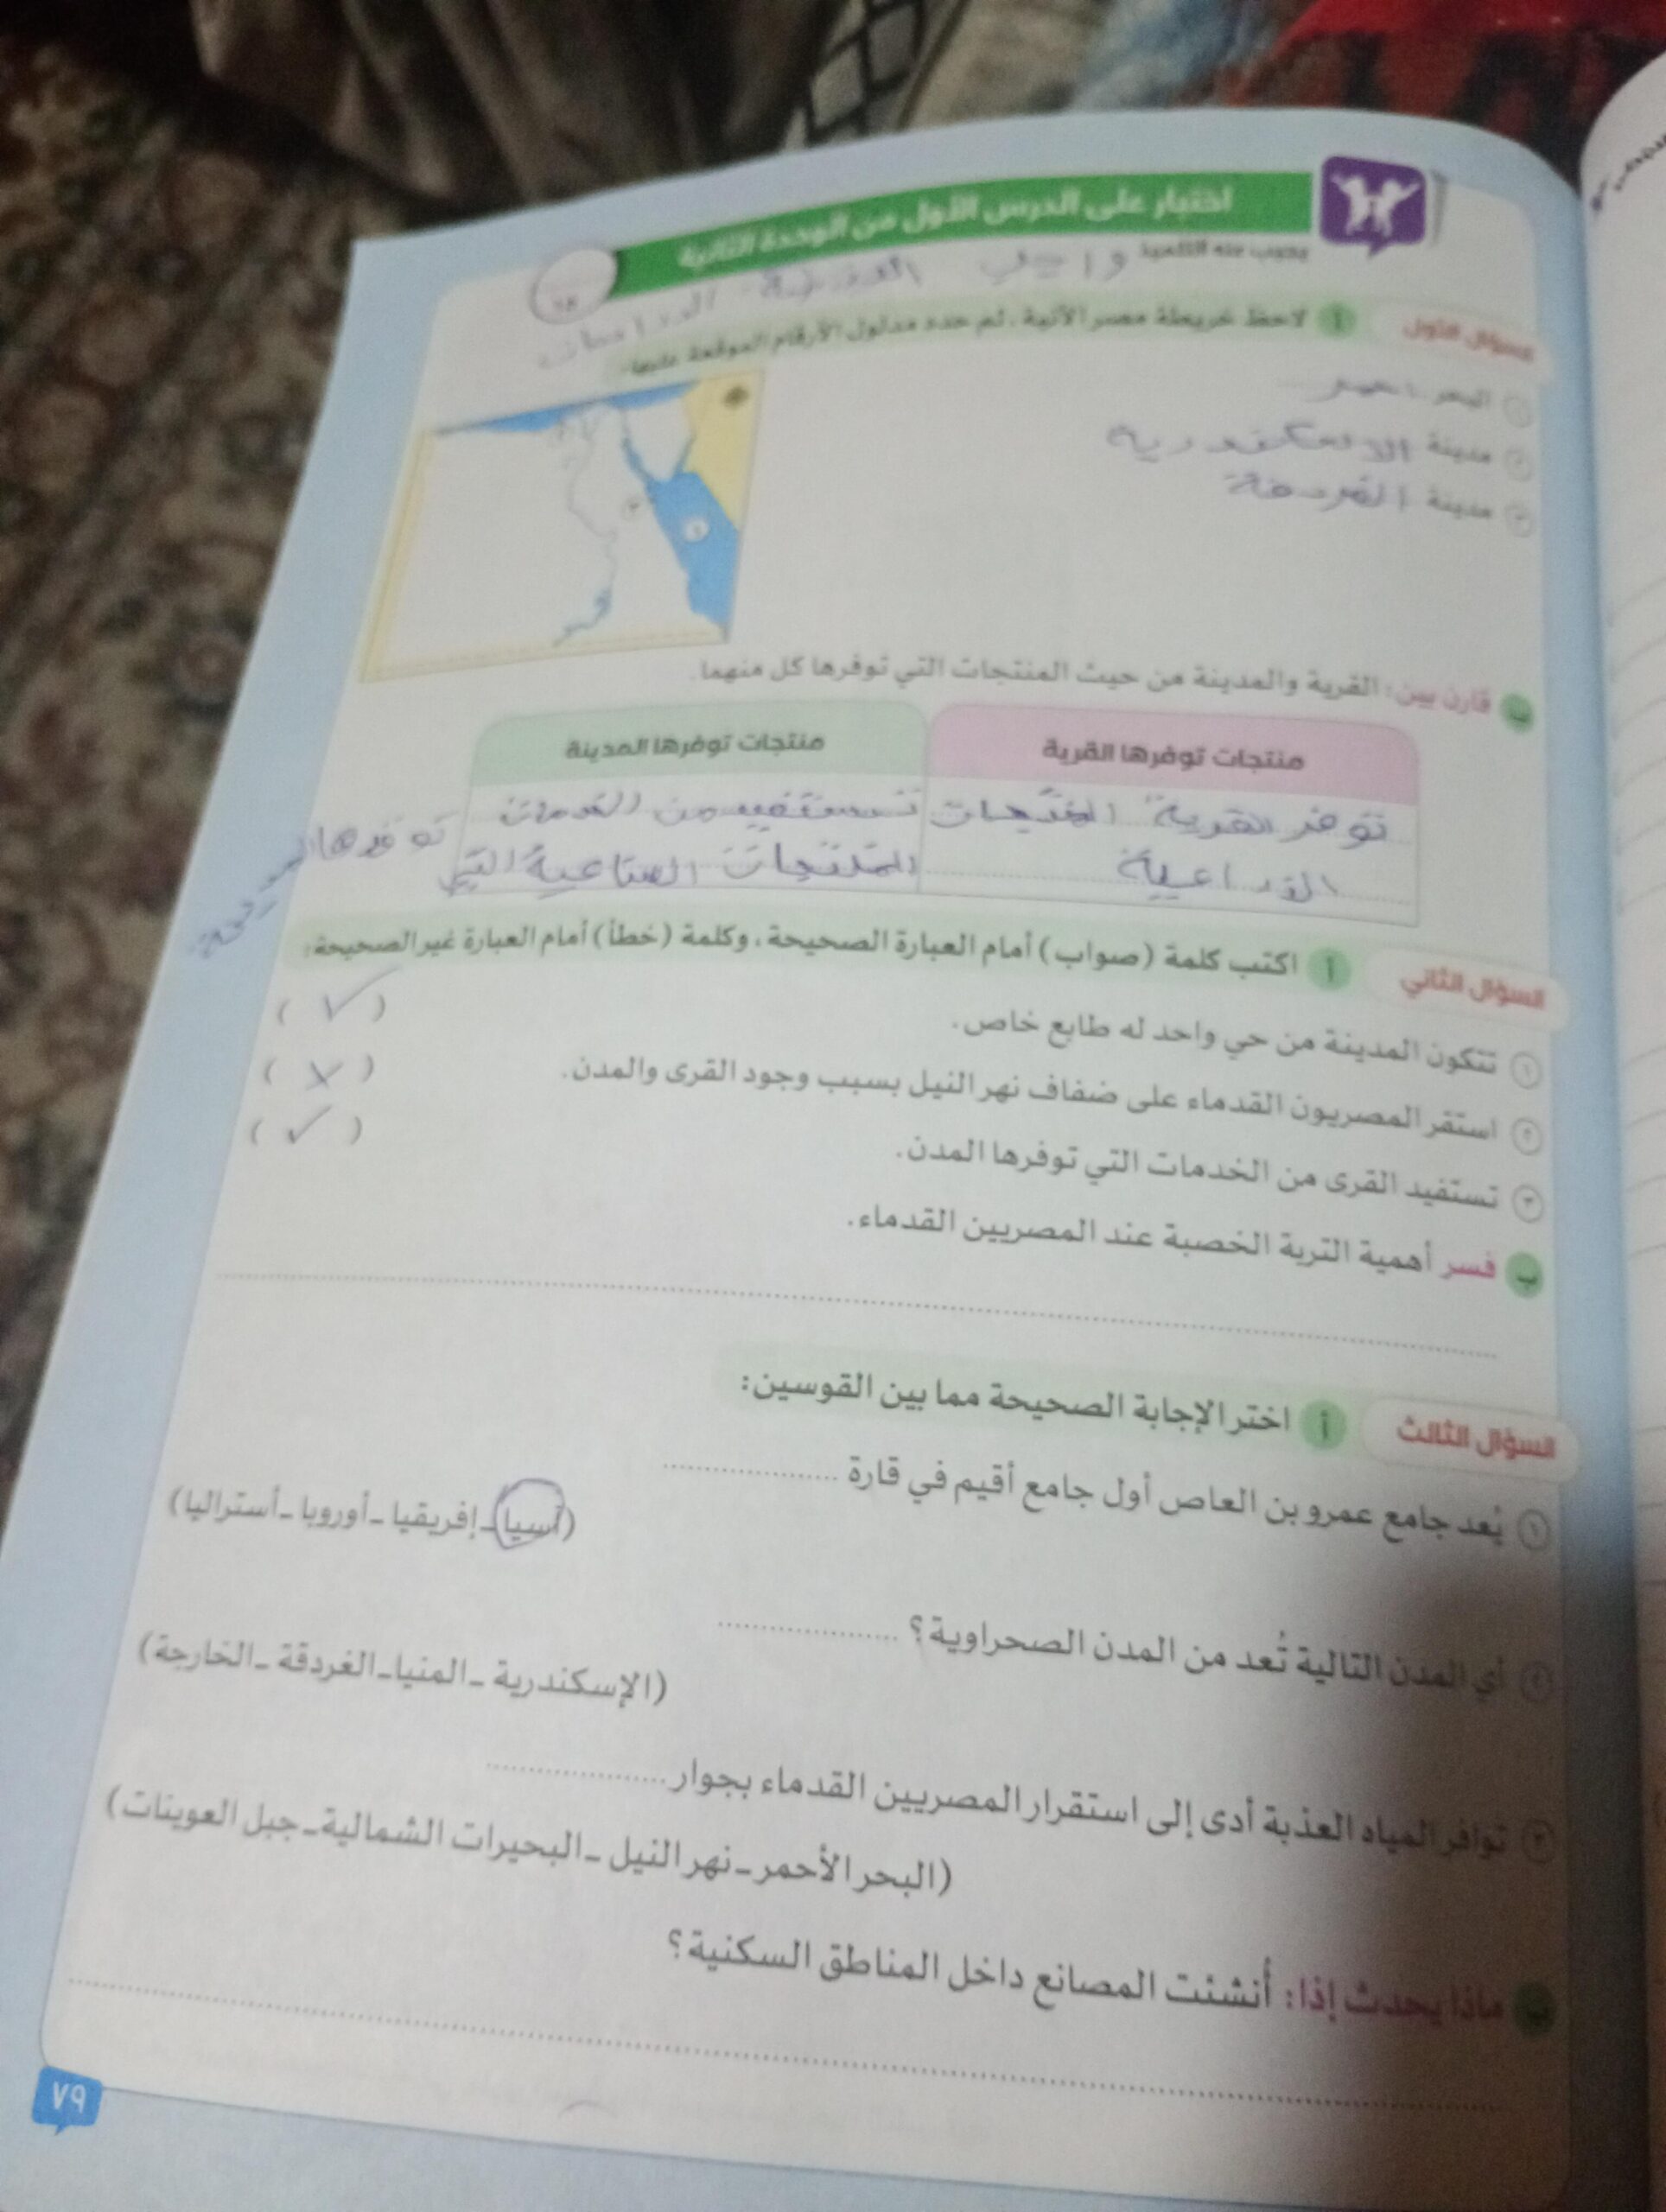 اختبار على الدرس الأول من الوحدة الثانية
يجيب عنه التلميذ
واجب
السؤال الأول أ لاحظ خريطة مصر الآتية، ثم حدد مدلول الأرقام الموقعة عليها:
١ البحر احمر
٢ مدينة الاسكندريه
٣ مدينة الغردقة
ب قارن بين: القرية والمدينة من حيث المنتجات التي توفرها كل منهما.
منتجات توفرها القرية منتجات توفرها المدينة
توفر القرية المنتجات تستفيد من الخدمات توفرها المدينة
الزراعية المنتجات الصناعية التي
السؤال الثاني أ اكتب كلمة (صواب) أمام العبارة الصحيحة، وكلمة (خطأ) أمام العبارة غير الصحيحة:
١ تتكون المدينة من حي واحد له طابع خاص. (✓)
٢ استقر المصريون القدماء على ضفاف نهر النيل بسبب وجود القرى والمدن. (✗)
٣ تستفيد القرى من الخدمات التي توفرها المدن. (✓)
ب فسر أهمية التربة الخصبة عند المصريين القدماء.
السؤال الثالث أ اختر الإجابة الصحيحة مما بين القوسين:
١ يُعد جامع عمرو بن العاص أول جامع أقيم في قارة ....................
(آسيا - إفريقيا - أوروبا - أستراليا)
٢ أي المدن التالية تُعد من المدن الصحراوية؟ ....................
(الإسكندرية - المنيا - الغردقة - الخارجة)
٣ توافر المياه العذبة أدى إلى استقرار المصريين القدماء بجوار ....................
(البحر الأحمر - نهر النيل - البحيرات الشمالية - جبل العوينات)
ب ماذا يحدث إذا: أُنشئت المصانع داخل المناطق السكنية؟
٧٩